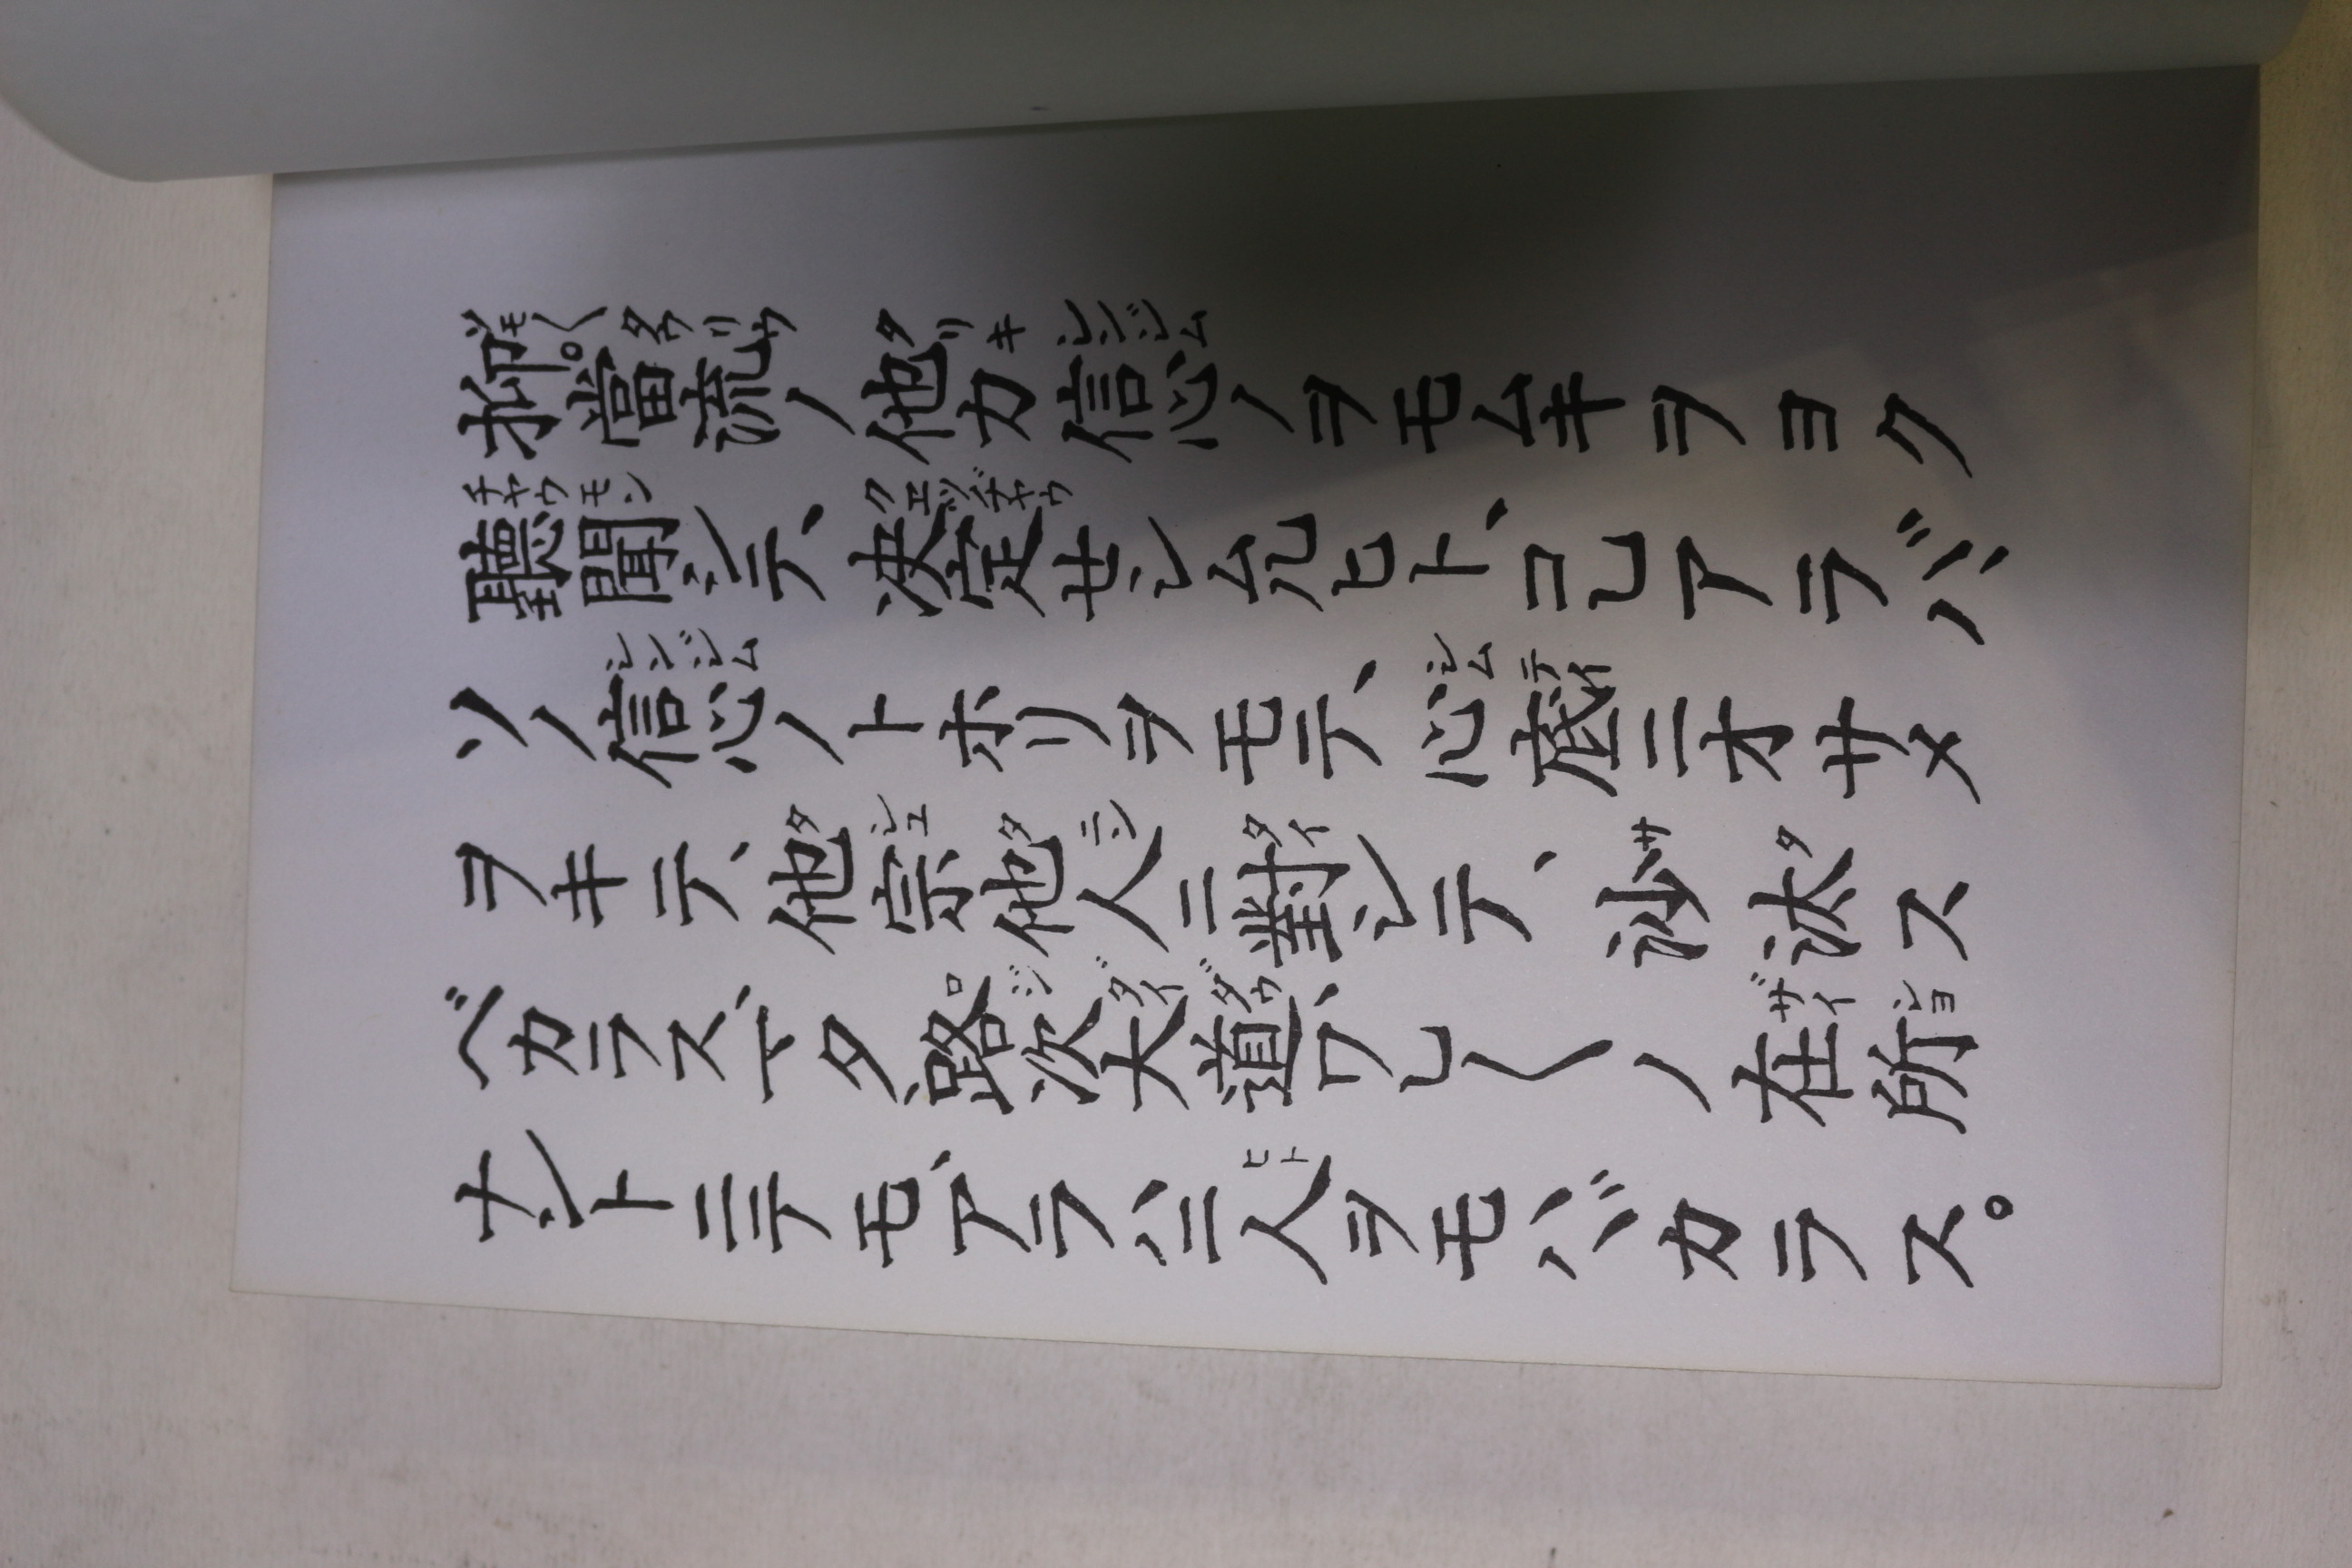 抑。當流ノ他力信心ノヲモムキヲヨク
聽聞シテ、決定セシムルヒト、コレアラバ、
ソノ信心ノトホリヲモテ、心底ニオサメ
ヲキテ、他宗他人ニ對シテ、沙汰ス
ベカラス、マタ、路次大道ワレ〱ノ在所
ナントニテモ、アラハニ人ヲモバカラス。